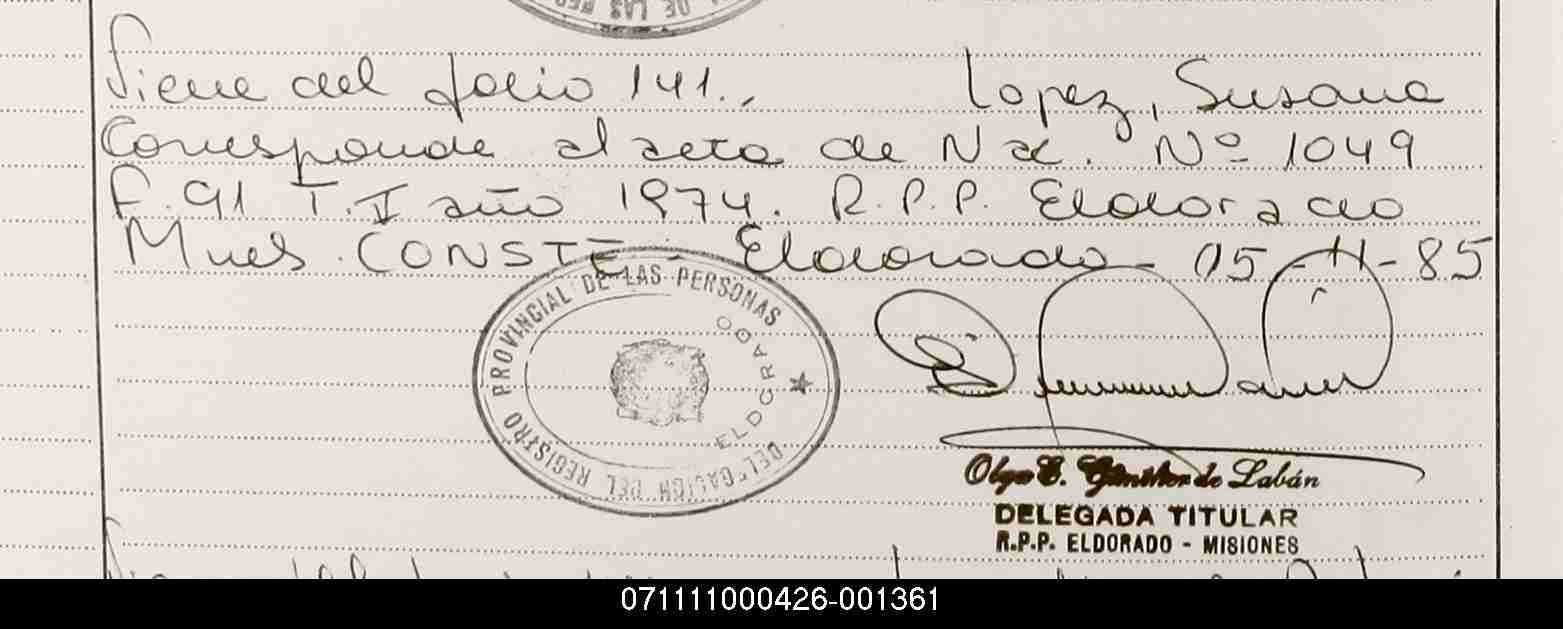 Viene del folio 141., Lopez, Susana
Corresponde al acta de Nac. Nº 1049
F. 91 T. I año 1974. R.P.P. Eldorado
Mnes. CONSTE. Eldorado - 05-11-85
DELEGACION DEL REGISTRO PROVINCIAL DE LAS PERSONAS
ELDORADO
Olga E. de Labán
DELEGADA TITULAR
R.P.P. ELDORADO - MISIONES
071111000426-001361